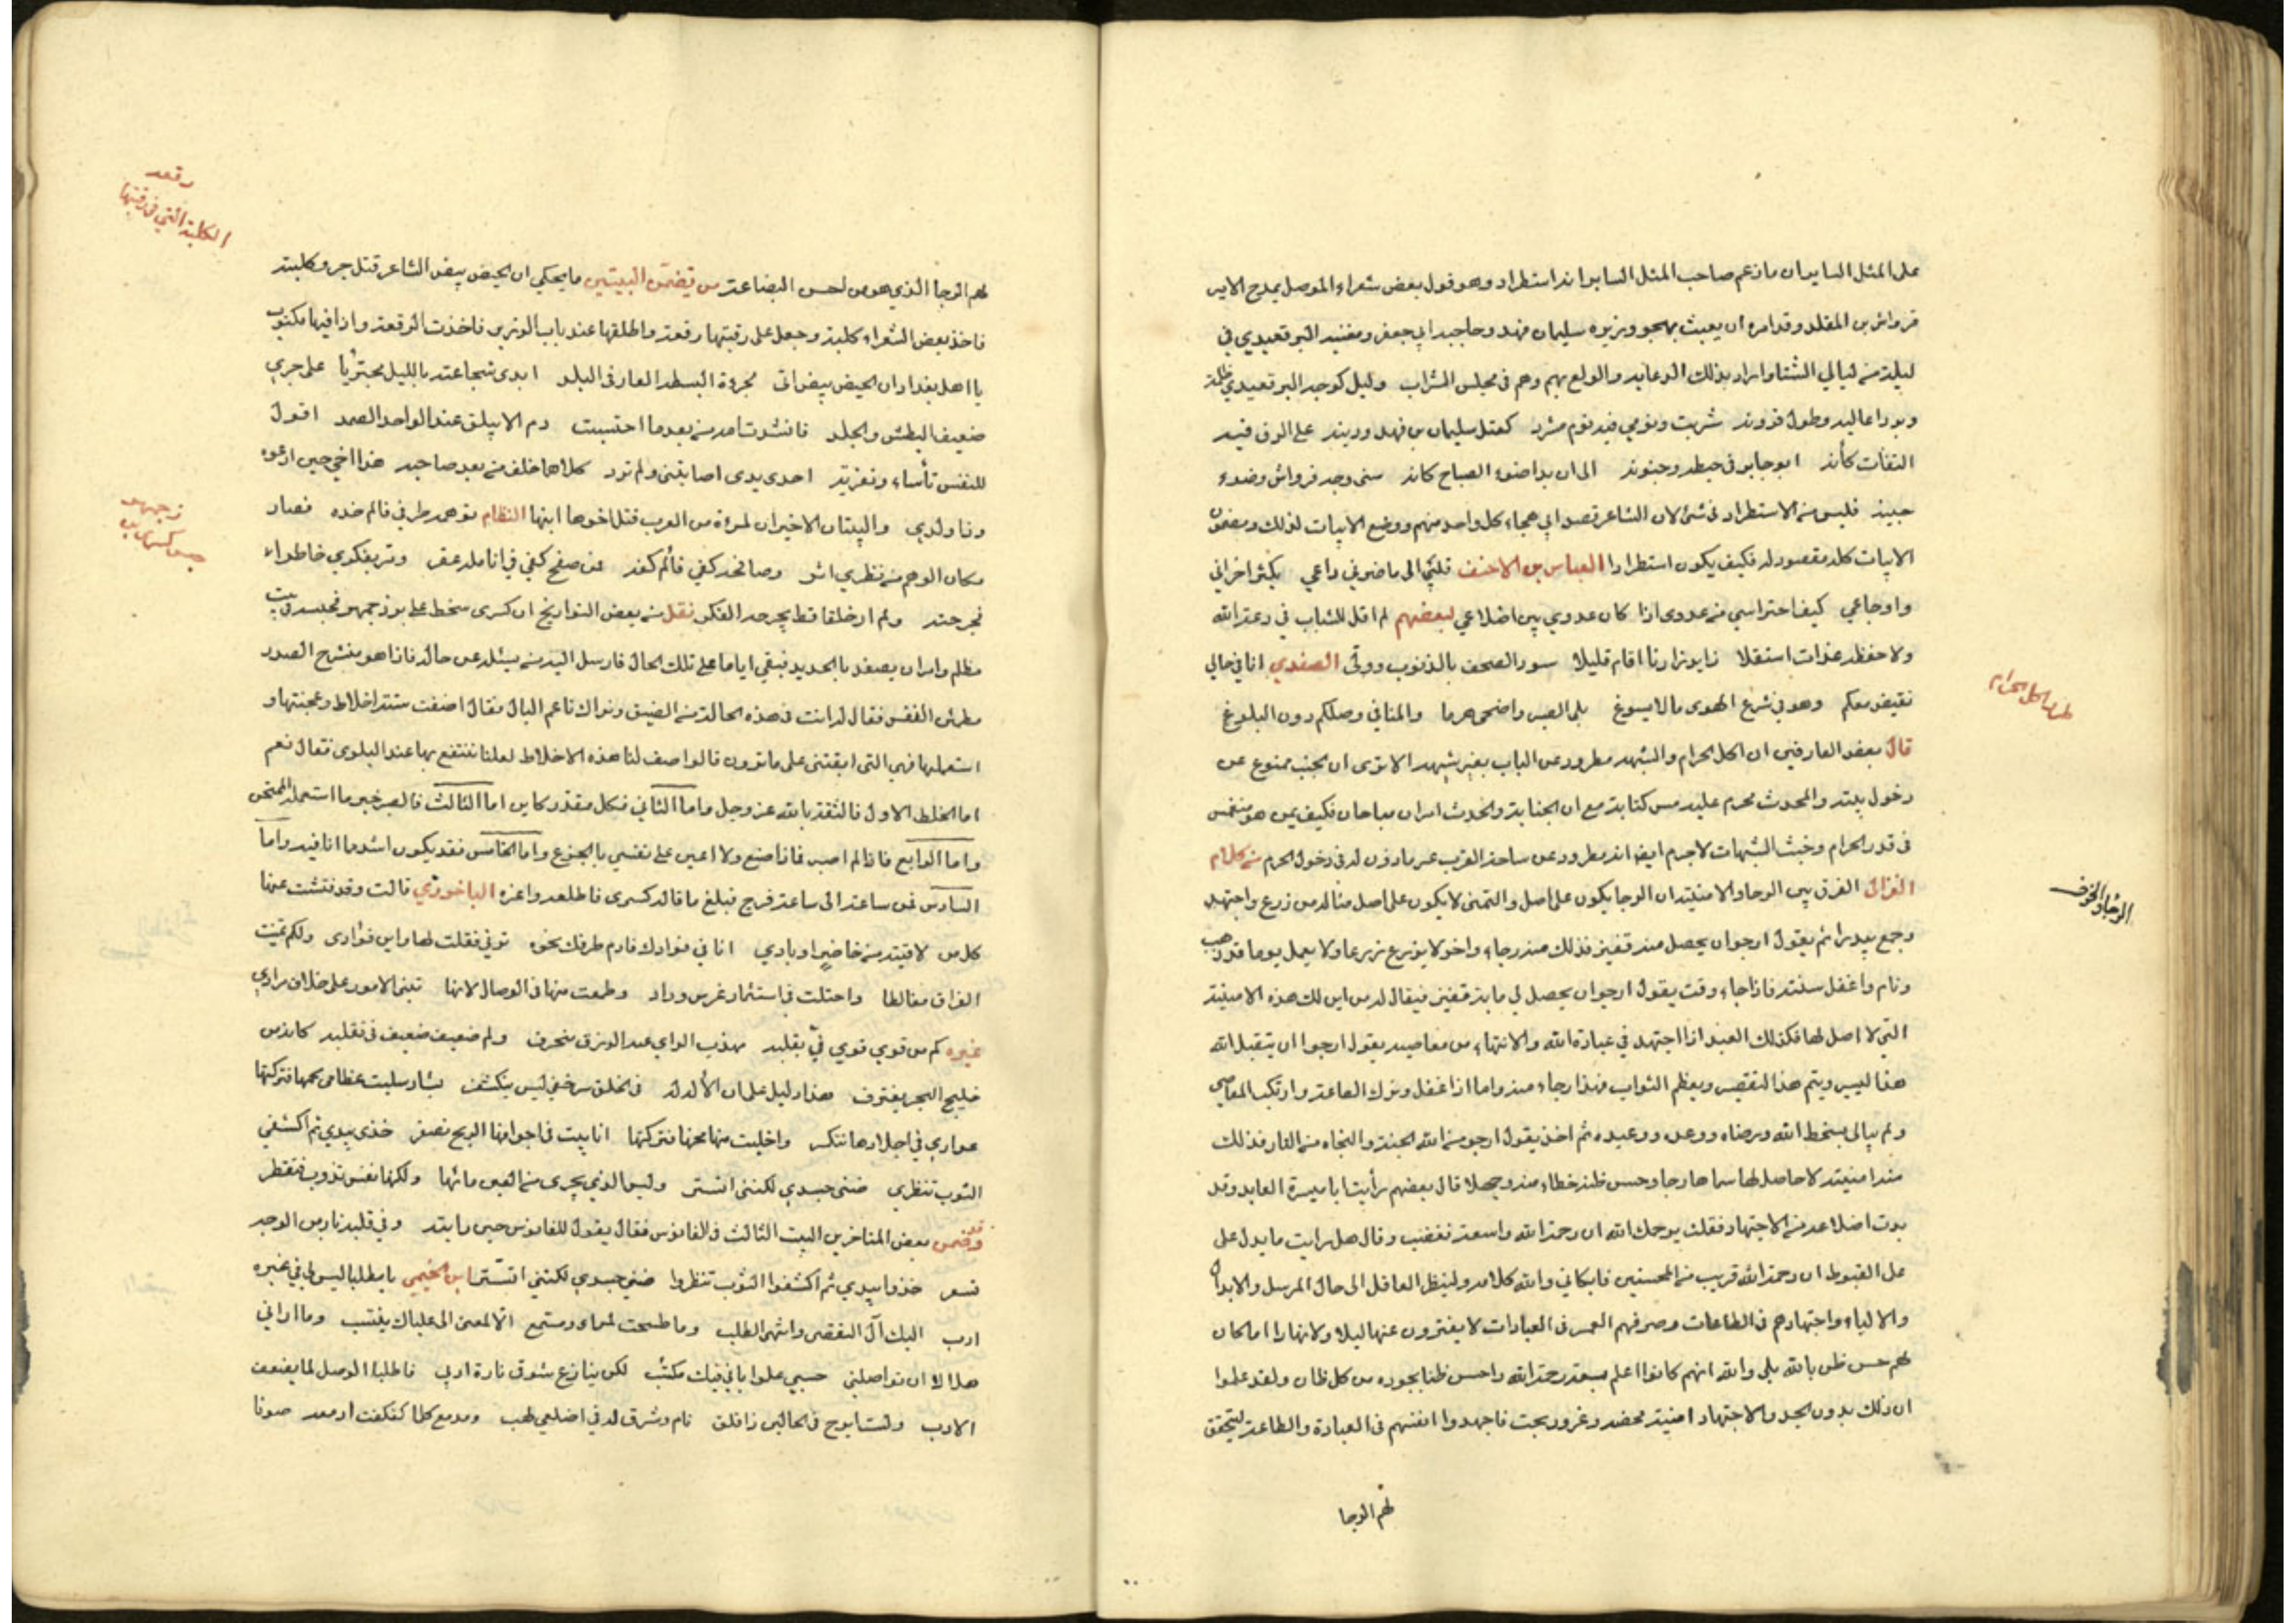 على المثل السايران ما زعم صاحب المثل السايرانه استطراد وهو قول بعض شعراء الموصل يمدح الامير
قرواش بن المقلد وقد امره ان يعبث بهجو وزيره سليمان فهد وحاجبه ابي جعفر ومغنيه البرقعيدي في
ليلة من ليالي الشتا واراد بذلك الدعابة والولع بهم وهم في مجلس الشراب وليل كوجه البرقعيدي ظلمة
وبرد اغانيه وطول قرونه شربت ونومي فيه نوم مشرد كعقل سليمان بن فهد ودينه على اولق فيه
التفات كأنه ابو جابر في خبطه وجنونه الى ان بدا ضوء الصباح كانه سنى وجه قرواش وضوء
جبينه فليس من الاستطراد في شئ لان الشاعر قصد الى هجاء كل واحد منهم ووضع الابيات لذلك ومضمون
الابيات كله مقصود له فكيف يكون استطرادا العباس بن الاحنف قلبي الى ما ضرني داعي يكثر احزاني
واوجاعي كيف احتراسي من عدوى اذا كان عدوي بين اضلاعي لبعضهم لم اقل للشباب في دعة الله
ولا حفظه غداة استقلا زاير زارنا اقام قليلا سود الصحف بالذنوب وولى الصفدي انا في حالي
نقيض معكم وهو في شرع الهوى ما لا يسوغ بلي الصبر واضحى هرما والمنا في وصلكم دون البلوغ
قال بعض العارفين ان اكل الحرام والشبهه مطرود عن الباب بغير شبهه الا ترى ان الجنب ممنوع عن
دخول بيته والمحدث محرم عليه مس كتابه مع ان الجنابة والحدث امران مباحان فكيف بمن هو منغمس
في قذر الحرام وخبث الشبهات لا جرم ايضا انه مطرود عن ساحة القرب غير ماذون له في دخول الحرم من كلام
الغزال الفرق بين الرجا والامنية ان الرجا يكون على اصل والتمنى لا يكون على اصل مثاله من زرع واجتهد
وجمع بيدرا ثم يقول ارجو ان يحصل منه قفيز فذلك منه رجاء واخر لا يزرع زرعا ولا يعمل يوما قد ذهب
ونام واغفل سنته فاذا جاء وقت يقول ارجو ان يحصل لي ماية قفيز فيقال له من اين لك هذه الامنية
التي لا اصل لها فكذلك العبد اذا اجتهد في عبادة الله والانتهاء من معاصيه يقول ارجوا ان يتقبل الله
هذا اليسير ويتم هذا التقصير ويعظم الثواب فهذا رجاء منه واما اذا غفل وترك الطاعة وارتكب المعاصي
ولم يبالى بسخط الله ورضاه ووعده ووعيده ثم اخذ يقول ارجو من الله الجنة والنجاه من النار فذلك
منه امنية لا حاصل لها سماها رجا وحسن ظنه خطاء منه وجهلا قال بعضهم رأيت ابا ميسرة العابد وقد
بدت اضلاعه من الاجتهاد فقلت يرحمك الله ان رحمة الله واسعة فغضب وقال هل رايت ما يدل على
على القنوط ان رحمة الله قريب من المحسنين فابكاني والله كلامه ولينظر العاقل الى حال الرسل والابدال
والاولياء واجتهادهم في الطاعات وصرفهم العمر في العبادات لا يفترون عنها ليلا ولا نهارا اما كان
لهم حسن ظن بالله بلى والله انهم كانوا اعلم بسعة رحمة الله واحسن ظنا بجوده من كل ظان ولقد علموا
ان ذلك بدون الجد والاجتهاد امنية محضه وغرور بحت فاجهدوا انفسهم في العبادة والطاعة ليتحقق
لهم الرجا
طرد اكل الحرام
الرجا والخوف
لهم الرجا الذي هو من احسن البضاعة من تضمن البيتين ما يحكي ان الحيص بيص الشاعر قتل جرو كلبة
فاخذ بعض الشعراء كلبة وجعل على رقبتها رقعة واطلقها عند باب الوزير فاخذت الرقعة واذا فيها مكتوب
يا اهل بغداد ان الحيص بيص اتى بجرءة البسطه العار في البلد ابدى شجاعته بالليل مجتريا على جري
ضعيف البطش والجلد فانشدت امه من بعدما احتسبت دم الابيلق عند الواحد الصمد اقول
للنفس تأساء وتعزية احدى يدي اصابتني ولم ترد كلاهما خلف من بعد صاحبه هذا اخي حين ادعوه
وذا ولدي والبيتان الاخيران لمرءة من العرب قتل اخوها ابنها النظام توهمه طرفي فالم خده فصار
مكان الوهم من نظري اثر وصافحه كفي فألم كفه فمن صفح كفي في انامله عقر ومر بفكري خاطرا
فجرحته ولم ار خلقا قط يجرحه الفكر نقل من بعض التواريخ ان كسرى سخط على بوزجمهر فحبسه في بيت
مظلم وامر ان يصفد بالحديد فبقي اياما على تلك الحال فارسل اليه من يسئله عن حاله فاذا هو منشرح الصدر
مطمئن النفس فقال له انت في هذه الحالة من الضيق ونراك ناعم البال فقال اصنفت ستة اخلاط وعجنتها و
استعملتها فهي التي ابقتني على ما ترون قالوا صف لنا هذه الاخلاط لعلنا ننتفع بها عند البلوى فقال نعم
اما الخلط الاول فالثقة بالله عز وجل واما الثاني فكل مقدر كاين اما الثالث فالصبر خير ما استعمله الممتحن
واما الرابع فاذا لم اصبر فاذا صنع ولا اعين على نفسي بالجزع واما الخامس فقد يكون اشد ما انا فيه واما
السادس فمن ساعة الى ساعة فرج فبلغ ما قاله كسرى فاطلعه واعزه الباخرزي قالت وقد فتشت عنها
كل من لاقيته من حاضر او بادي انا في فؤادك فارم طرفك نحوه ترني فقلت لها واين فؤادى ولكم تمنيت
الفراق مغالطا واحتلت في استثمار غرس وداد وطمعت منها في الوصال لانها تبني الامور على خلاف مرادي
غيره كم من قوي قوي في تقلبه مهذب الراي عنه الرزق منحرف ولم ضعيف ضعيف في تقلبه كانه من
خليج البحر يغترف هذا دليل على ان الأله له في الخلق سر خفي ليس ينكشف بشار سلبت عظامى لحمها فتركتها
عواري في اجلادها تتكسر واخليت منها مخها فتركتها انابيب في اجوافها الريح تصفر خذى بيدي ثم اكشفي
الثوب تنظري ضنى جسدي لكنني اتستر وليس الذي يجرى من العين مائها ولكنها نفس تذوب فتقطر
وقد ضمن بعض المتاخرين البيت الثالث في الفانوس فقال يقول للفانوس حين راته وفي قلبه نار من الوجد
تسعر خذوا بيدي ثم اكشفوا الثوب تنظروا ضنى جسدي لكنني اتستر ابن الخيمي يا مطلبا ليس لي في غيره
ارب اليك آل التقصي وانتهى الطلب وما طمحت لمراى ومستمع الا لمعنى الى علياك ينتسب وما اراني
هلا لا ان تواصلني حسبي علوا باني فيك مكتئب لكن ينازع شوق تارة ادبي فاطلب الوصل لما يضعف
الادب ولست ابرح في الحالين ذا قلق نام وشوق له في اضلعي لهب ومدمع كلما كفكفت ادمعه صونا
رقعه
الكلبة التي في رقبتها